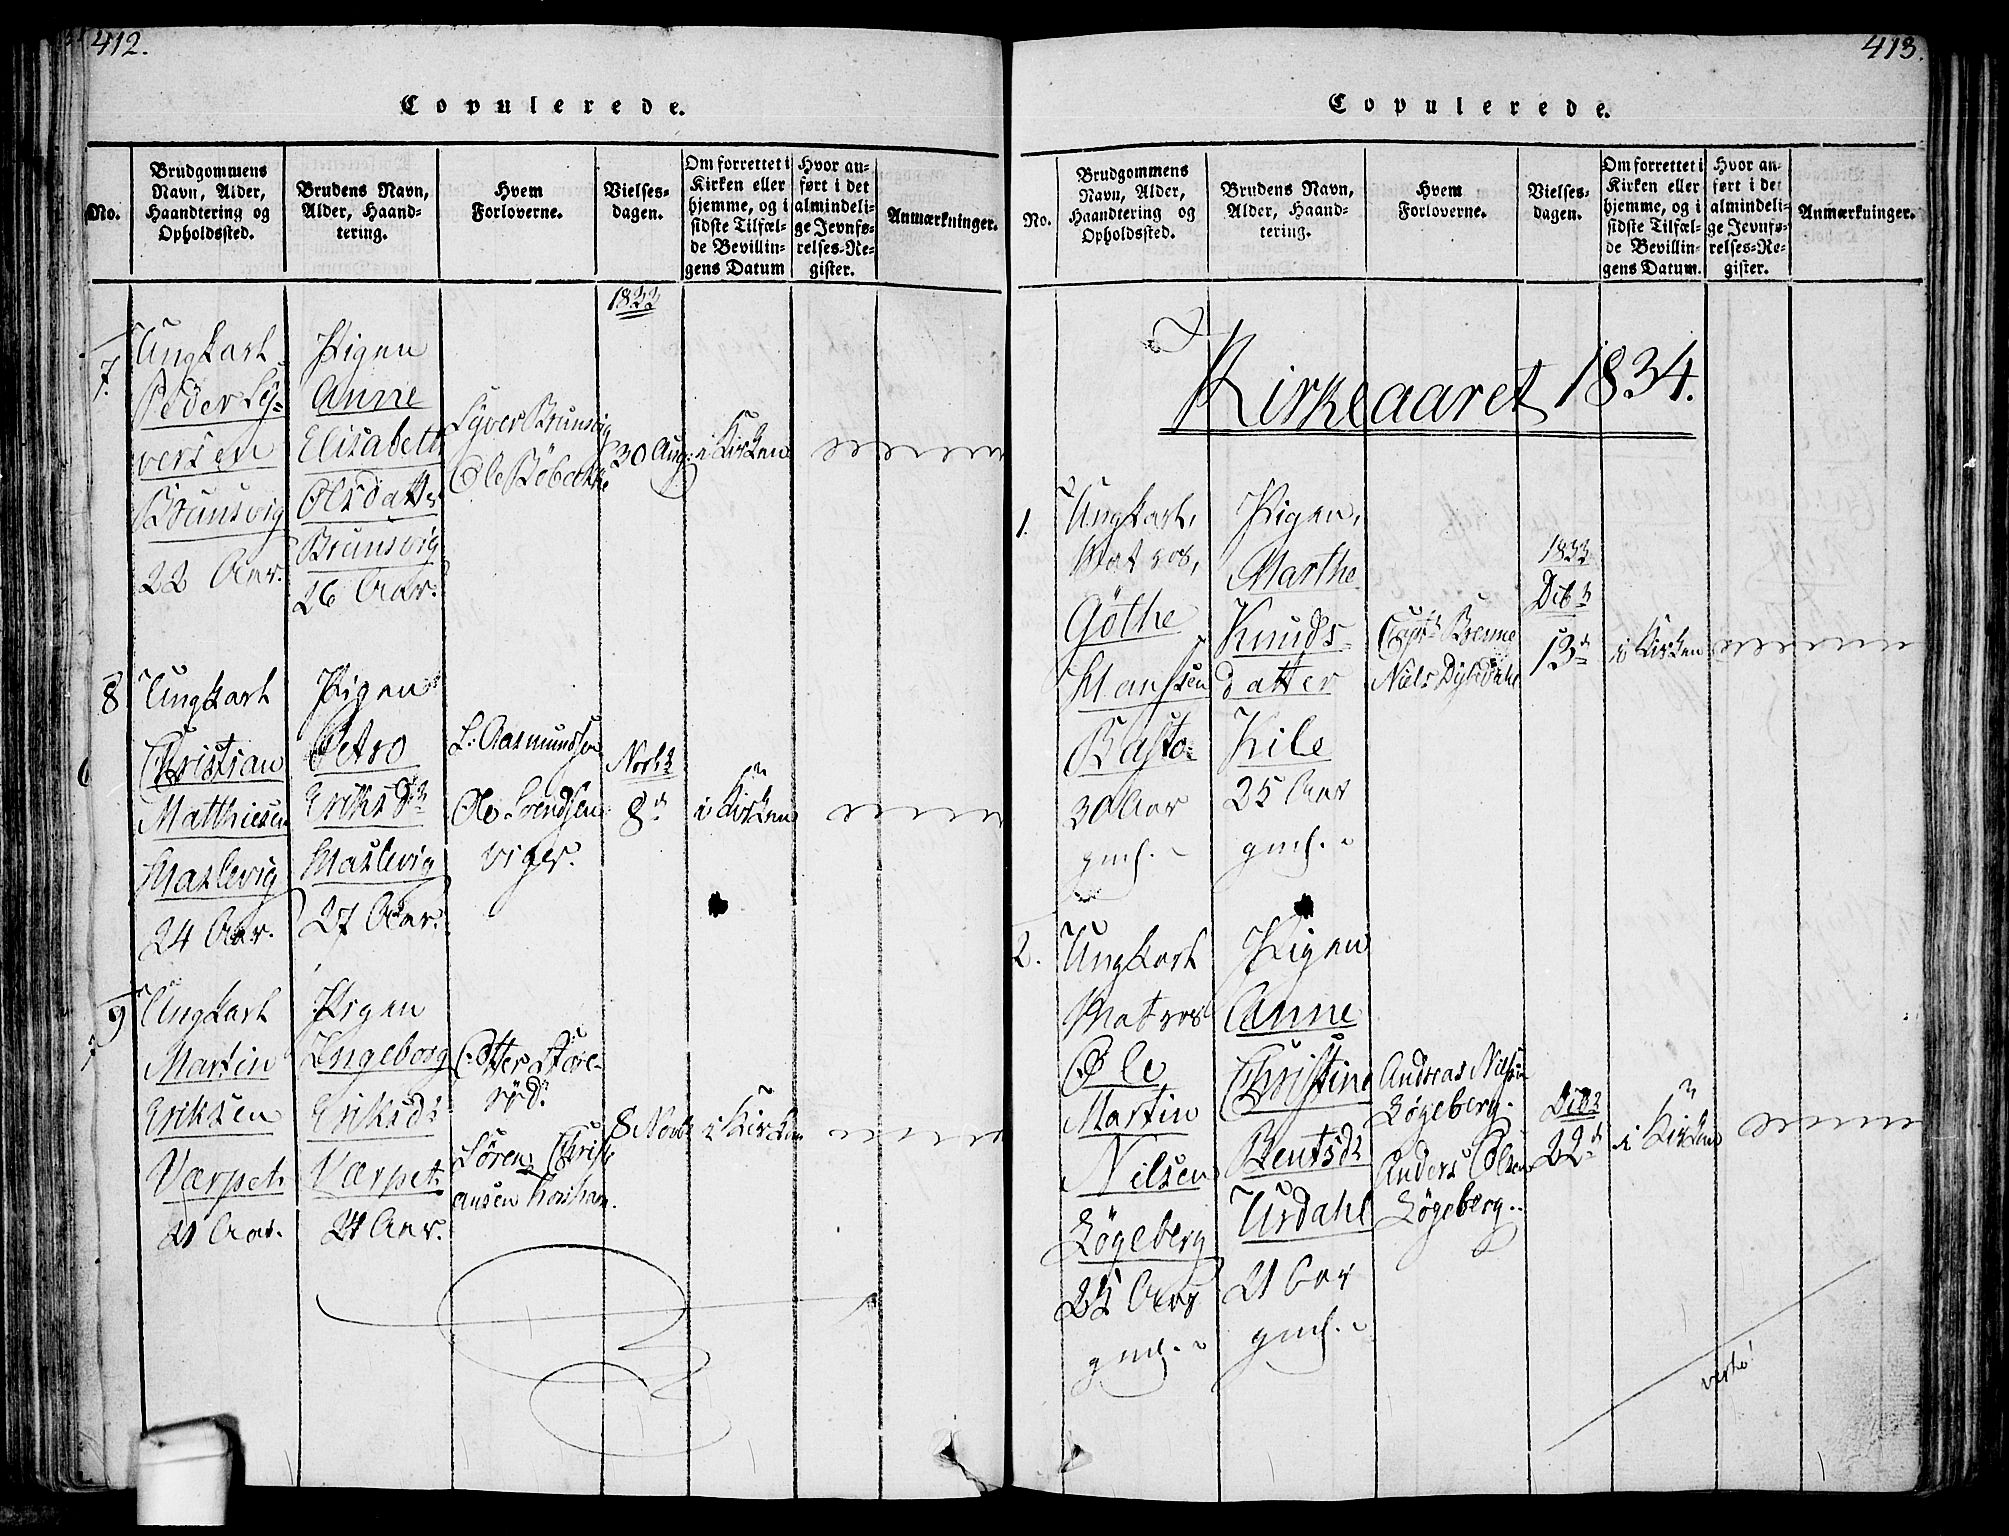 412.
Copulerede.
No.
Brudgommens
Navn, Alder,
Haandtering og
Opholdssted.
Brudens Navn,
Alder, Haand-
tering.
Hvem
Forloverne.
Vielses-
dagen.
Om forrettet i
Kirken eller
hjemme, og i
sidste Tilfæl-
de Bevillin-
gens Datum
Hvor an-
ført i det
almindeli-
ge Jevnfø-
relses-Re-
gister.
Anmærkninger.
1833
7.
Ungkarl
Peder Sy-
versen
Brunsvig
22 Aar.
Pigen
Anne
Elisabeth
Olsdatter
Brunsvig
26 Aar.
Syver Brunsvig
Ole
30 Aug:
i Kirken
8
Ungkarl
Christian
Matthiesen
Maslevig
24 Aar.
Pigen
Petro
Eriks Dtr
Maslevig
27 Aar.
L: Aasmundsen
Ole Svendsen
viger.
Novbr
8d
i Kirken
9
Ungkarl
Martin
Eriksen
Værpet
21 Aar.
Pigen
Ingeborg
Eriksdr
Værpet
24 Aar.
Otter Store-
rød.
Søren Christi
ansen
8 Novbr
i Kirken
413.
Copulerede.
No.
Brudgommens
Navn, Alder,
Haandtering og
Opholdssted.
Brudens Navn,
Alder, Haand-
tering.
Hvem
Forloverne.
Vielses-
dagen.
Om forrettet i
Kirken eller
hjemme, og i
sidste Tilfæl-
de Bevillin-
gens Datum.
Hvor an-
ført i det
almindeli-
ge Jevnfø-
relses-Re-
gister.
Anmærkninger.
Kirkeaaret 1834.
1.
Ungkarl,
Matros,
Göthe
Hansen
Basto-
30 Aar
Pigen,
Marthe
Knuds-
datter
Kile
25 Aar
Brenne
Niels
1833
Dibr
13d
i Kirken
2.
Ungkarl
Matros
Ole
Martin
Nilsen
Løgeberg
25 Aar
Pigen
Anne
Christine
Bentsdr
Urdahl
21 Aar
Andreas Nilsen
Løgeberg.
Anders Olsen
Løgeberg.
Dibr
22d
i Kirken